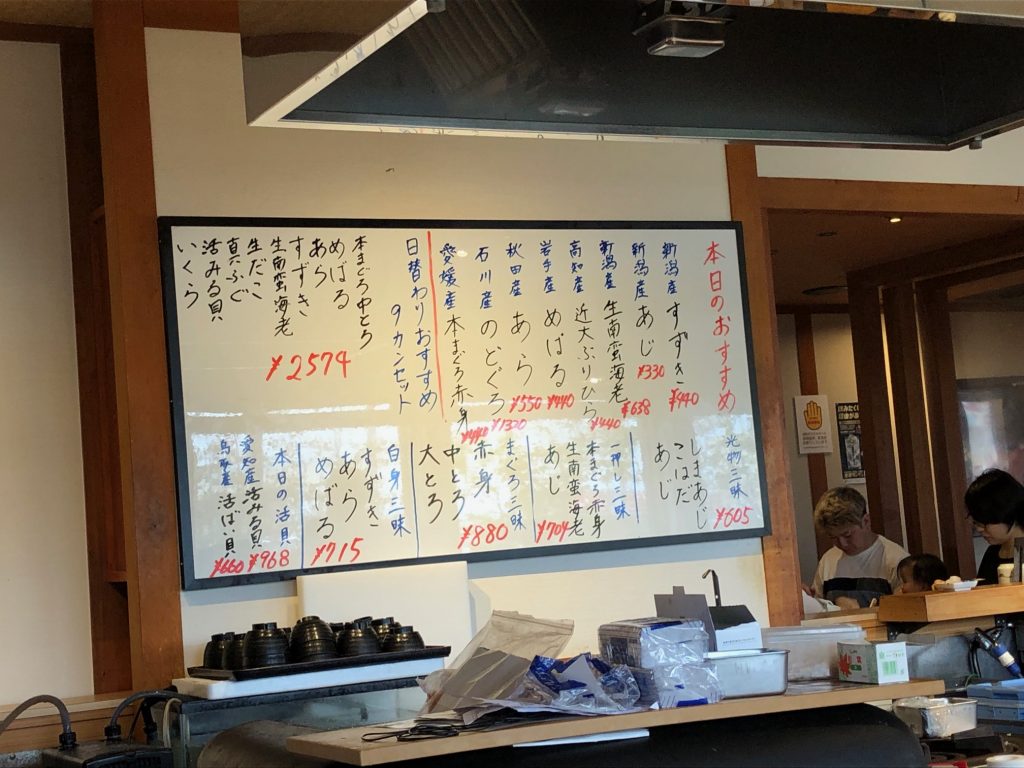 本日のおすすめ
新潟産 すずき ¥440
新潟産 あじ ¥330
新潟産 生南蛮海老 ¥638
高知産 近大ぶりひら ¥440
岩手産 めばる ¥440
秋田産 あら ¥550
石川産 のどぐろ ¥1320
愛媛産 本まぐろ赤身 ¥440
日替わりおすすめ
9カンセット
本まぐろ中とろ
めばる
あら
すずき
生南蛮海老
生だこ
真ふぐ
活みる貝
いくら
¥2574
光物三昧 ¥605
しまあじ
こはだ
あじ
一押し三昧
本まぐろ赤身
生南蛮海老
あじ
¥704
まぐろ三昧
赤身
中とろ
大とろ
¥880
白身三昧
すずき
あら
めばる
¥715
本日の活貝
愛知産 活みる貝 ¥968
鳥取産 活ばい貝 ¥660